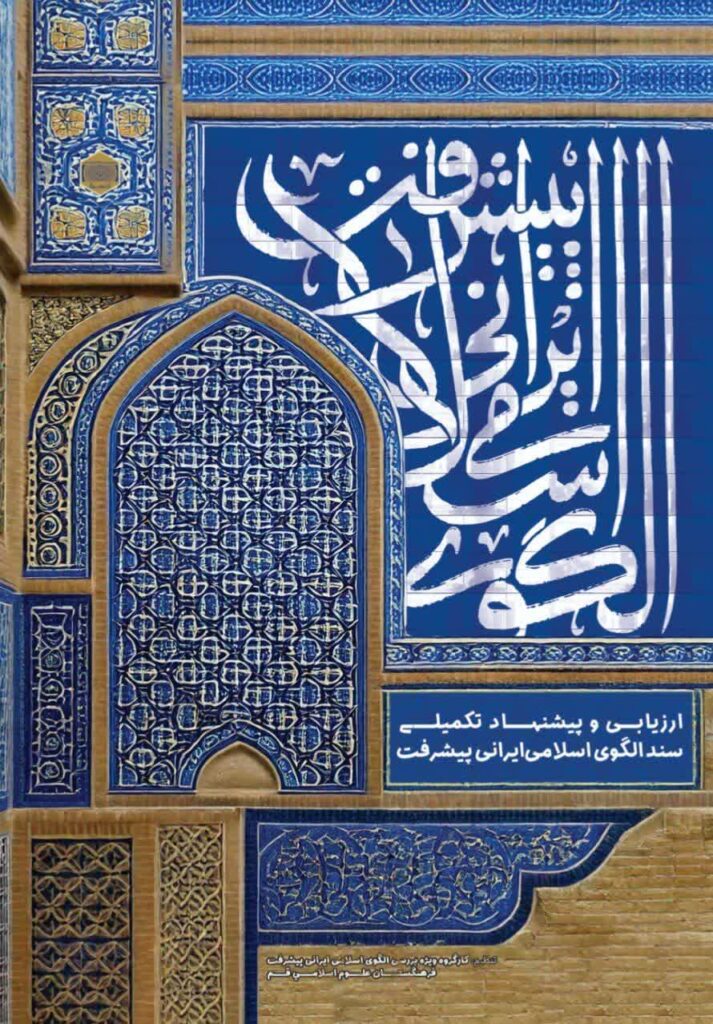 الگوی
اسلامی
ایرانی
پیشرفت
ارزیابی و پیشنهاد تکمیلی
سند الگوی اسلامی ایرانی پیشرفت
تنظیم: کارگروه ویژه بررسی الگوی اسلامی ایرانی پیشرفت
فرهنگستان علوم اسلامی قم